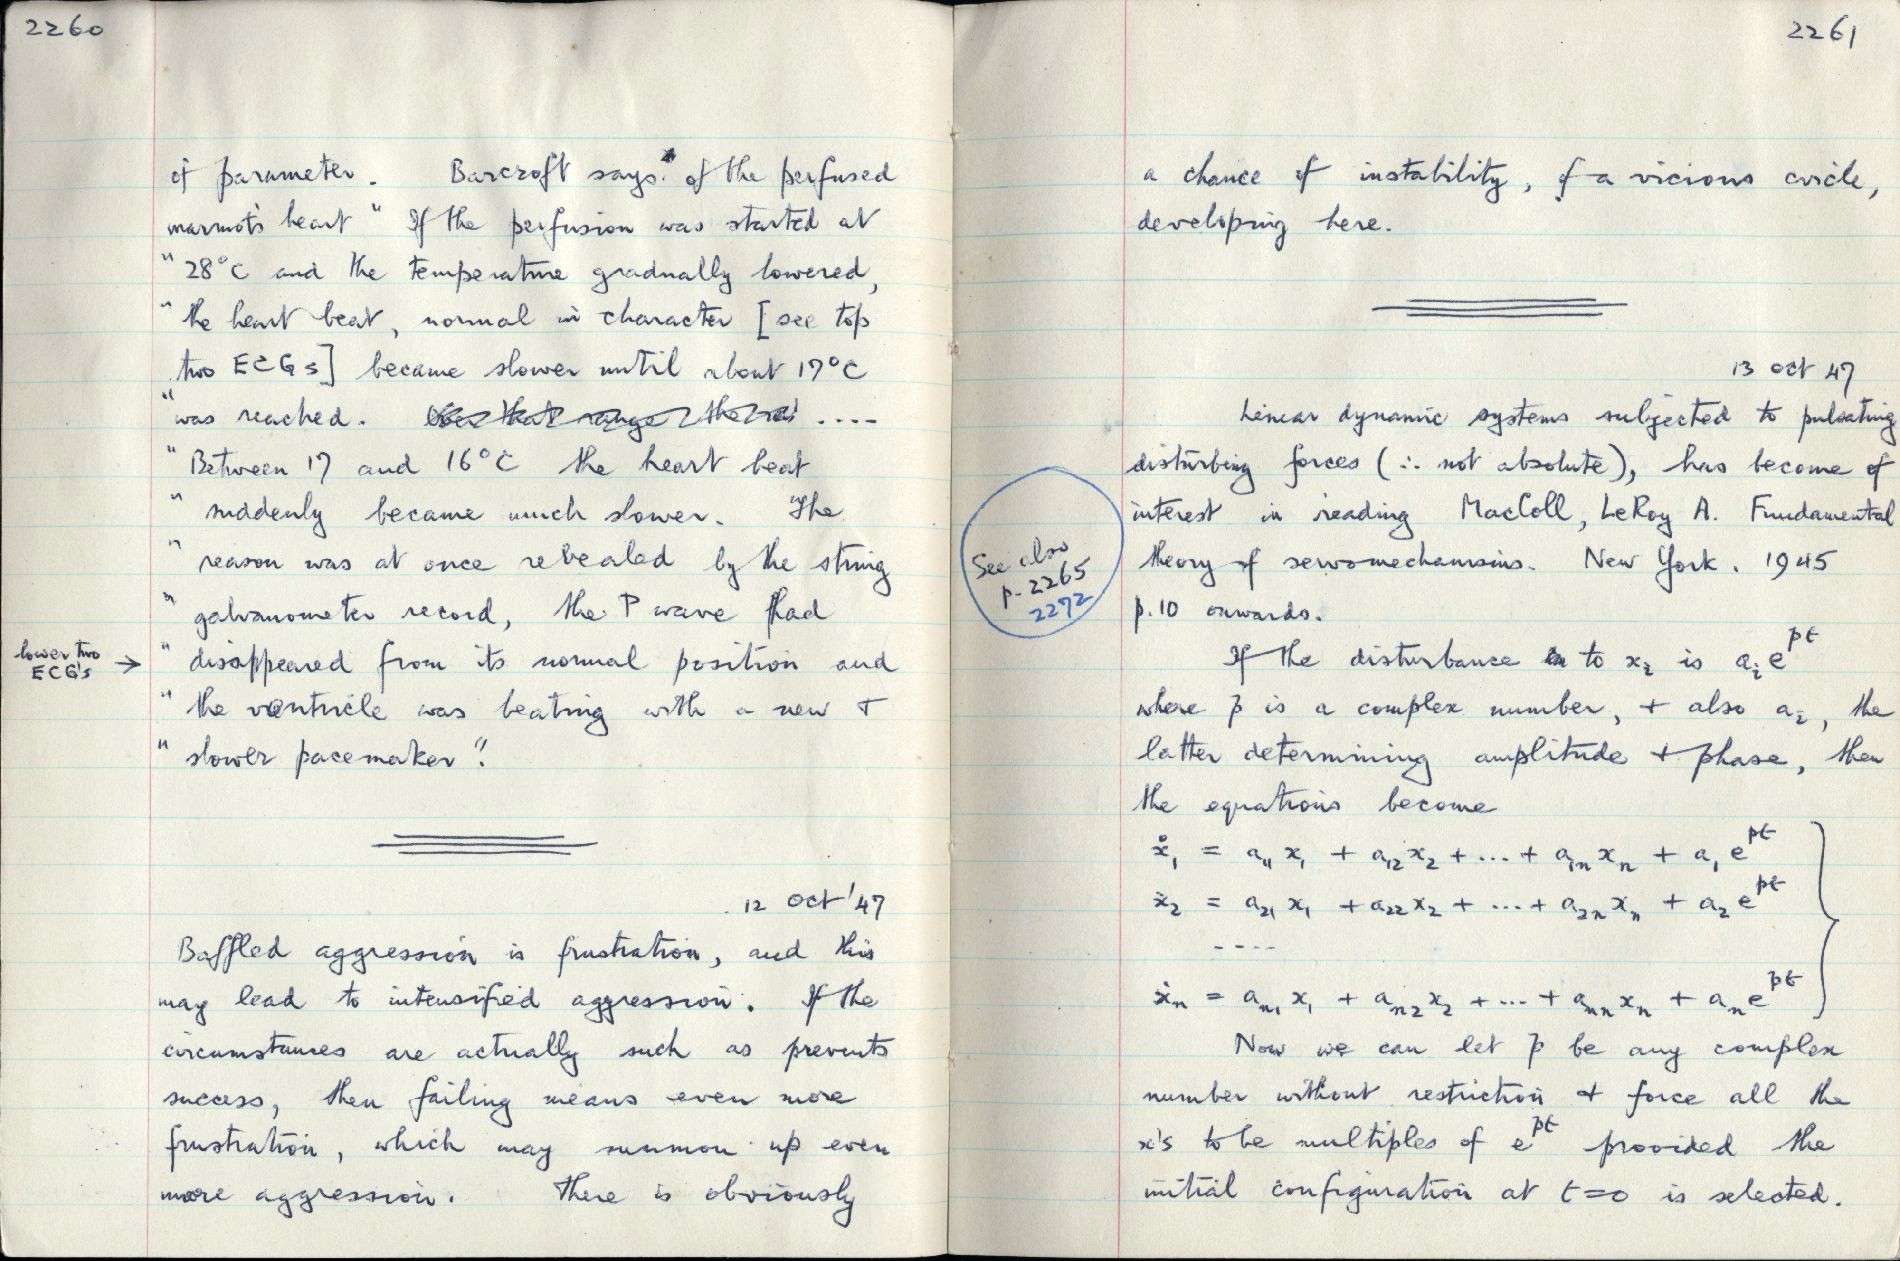 2260
of parameter. Barcroft says of the perfused
marmot's heart " If the perfusion was started at
" 28°C and the temperature gradually lowered,
" the heart beat, normal in character [see top
two ECGs] became slower until about 17°C
" was reached. Over that range the ....
" Between 17 and 16°C the heart beat
" suddenly became much slower. The
" reason was at once revealed by the string
" galvanometer record, the P wave had
lower two
ECG's →
" disappeared from its normal position and
" the ventricle was beating with a new +
" slower pacemaker".
12 Oct '47
Baffled aggression is frustration, and this
may lead to intensified aggression. If the
circumstances are actually such as prevents
success, then failing means even more
frustration, which may summon up even
more aggression. There is obviously
2261
a chance of instability, of a vicious circle,
developing here.
13 Oct 47
Linear dynamic systems subjected to pulsating
disturbing forces (∴ not absolute), has become of
interest in reading MacColl, LeRoy A. Fundamental
theory of servomechanisms. New York. 1945
p.10 onwards.
See also
p. 2265
2272
If the disturbance to xᵢ is aᵢe^pt
where p is a complex number, + also aᵢ, the
latter determining amplitude + phase, then
the equations become
ẋ₁ = a₁₁x₁ + a₁₂x₂ + ... + a₁ₙxₙ + a₁e^pt
ẋ₂ = a₂₁x₁ + a₂₂x₂ + ... + a₂ₙxₙ + a₂e^pt
----
ẋₙ = aₙ₁x₁ + aₙ₂x₂ + ... + aₙₙxₙ + aₙe^pt
Now we can let p be any complex
number without restriction + force all the
x's to be multiples of e^pt provided the
initial configuration at t=0 is selected.